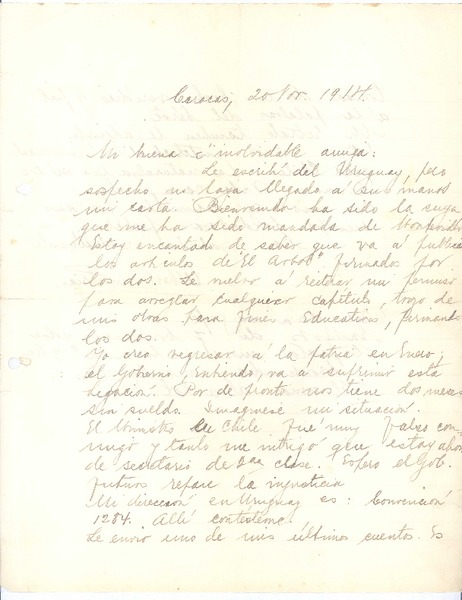 Caracas, 20 Nov. 1914.
Mi buena é inolvidable amiga:
Le escribí del Uruguay, pero
sospecho no haya llegado a sus manos
mi carta. Bienvenida ha sido la suya
que me ha sido mandada de Montevideo
Estoy encantado de saber que va á publicar
los artículos de "El Arbol" firmados por
los dos. Le vuelvo á reiterar mi permiso
para arreglar cualquier capítulo, trozo de
mis obras para fines Educativos, firmando
los dos.
Yo creo regresar á la patria en Enero,
el Gobierno, Entiendo, va á suprimir esta
legación. Por de pronto nos tiene dos meses
sin sueldo. Imagínese mi situación.
El Ministro de Chile fué muy falso con-
migo y tanto me intrigó que estoy ahora
de secretario de 2ª clase. Espero el Gob.
futuro repare la injusticia
Mi dirección en Uruguay es: Convención
1284. Allí contésteme.
Le envío uno de mis últimos cuentos. Es